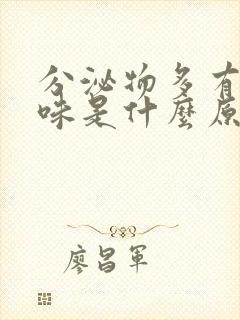 分泌物多有
味是什麼原
廖昌軍